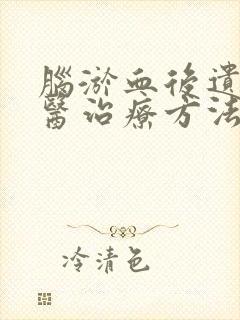 腦淤血後遺
醫治療方法
冷清色